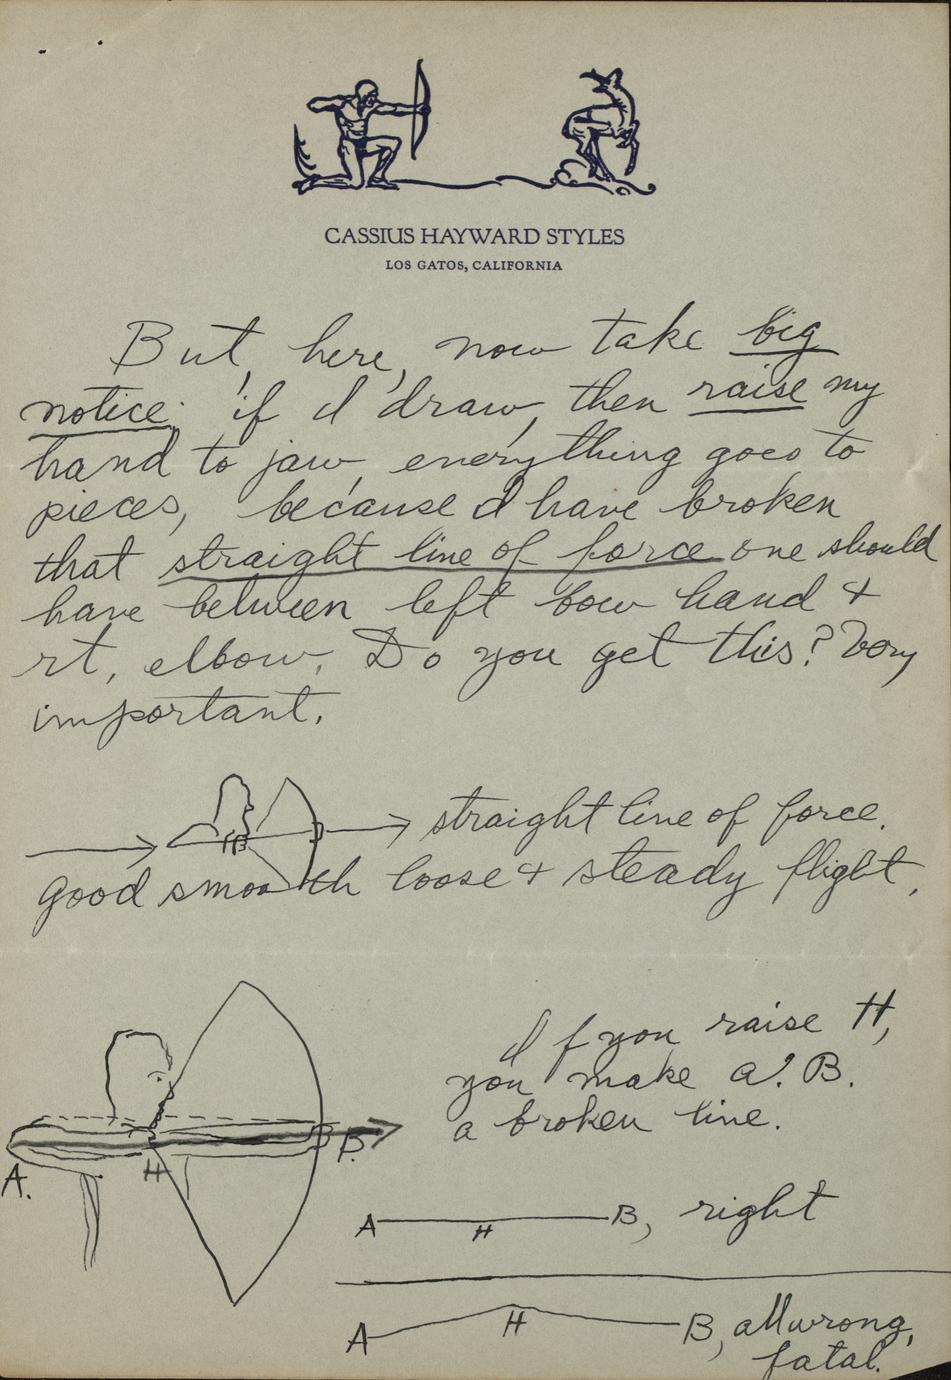 CASSIUS HAYWARD STYLES
LOS GATOS, CALIFORNIA
But, here, now take big
notice; if I draw, then raise my
hand to jaw, everything goes to
pieces, because I'd have broken
that straight line of force one should
have between left bow hand &
rt, elbow. Do you get this? Very
important.
straight line of force.
good smooth loose & steady flight.
If you raise H,
you make A. B.
a broken line.
A. H B.
A H B, right
A H B, all wrong,
fatal.